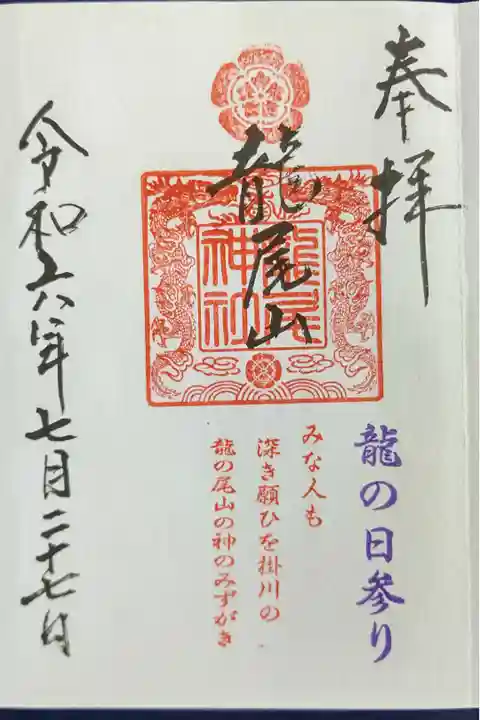 奉拝
龍の日参り
龍尾山
龍尾神社
みな人も
深き願ひを掛川の
龍の尾山の神のみずがき
令和六年七月二十七日